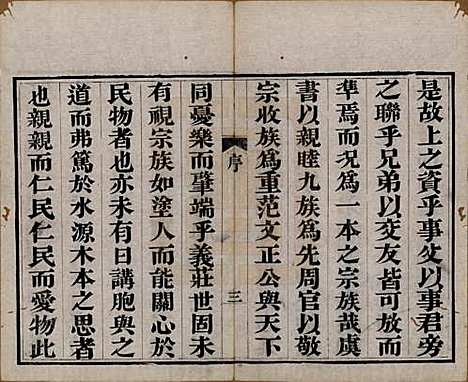 是故上之資乎事父以事君旁
之聯乎兄弟以交友皆可放而
準焉而況爲一本之宗族哉虞
書以親睦九族爲先周官以敬
宗收族爲重范文正公與天下
序
三
同憂樂而肇端乎義莊世固未
有視宗族如塗人而能關心於
民物者也亦未有日講胞與之
道而弗篤於水源木本之思者
也親親而仁民仁民而愛物此